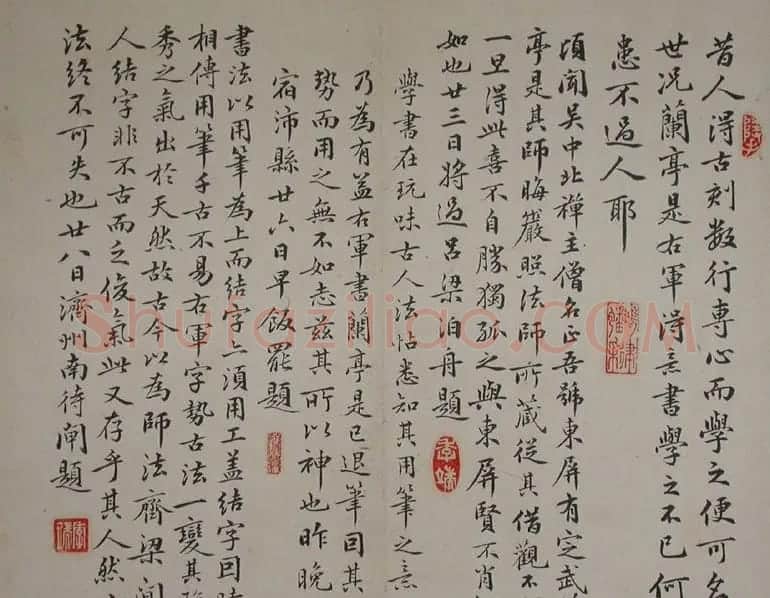 昔人得古刻数行專心而學之便可名
世况蘭亭是右軍得意書學之不已何
患不過人耶
頃聞吳中北禪主僧名正吾號東屏有定武
亭是其師晦巖照法師所藏從其借觀不
一旦得此喜不自勝獨孤之與東屏賢不肖
如也廿三日將過呂梁泊舟題
學書在玩味古人法帖悉知其用筆之意
乃為有益右軍書蘭亭是已退筆囙其
勢而用之無不如志兹其所以神也昨晚
宿沛縣廿六日早飯罷題
書法以用筆為上而結字亦須用工盖結字囙時
相傳用筆千古不易右軍字勢古法一變其雄
秀之氣出於天然故古今以為師法齊梁間
人結字非不古而乏俊氣此又存乎其人然
法終不可失也廿八日濟州南待閘題
Shufaziliao.COM